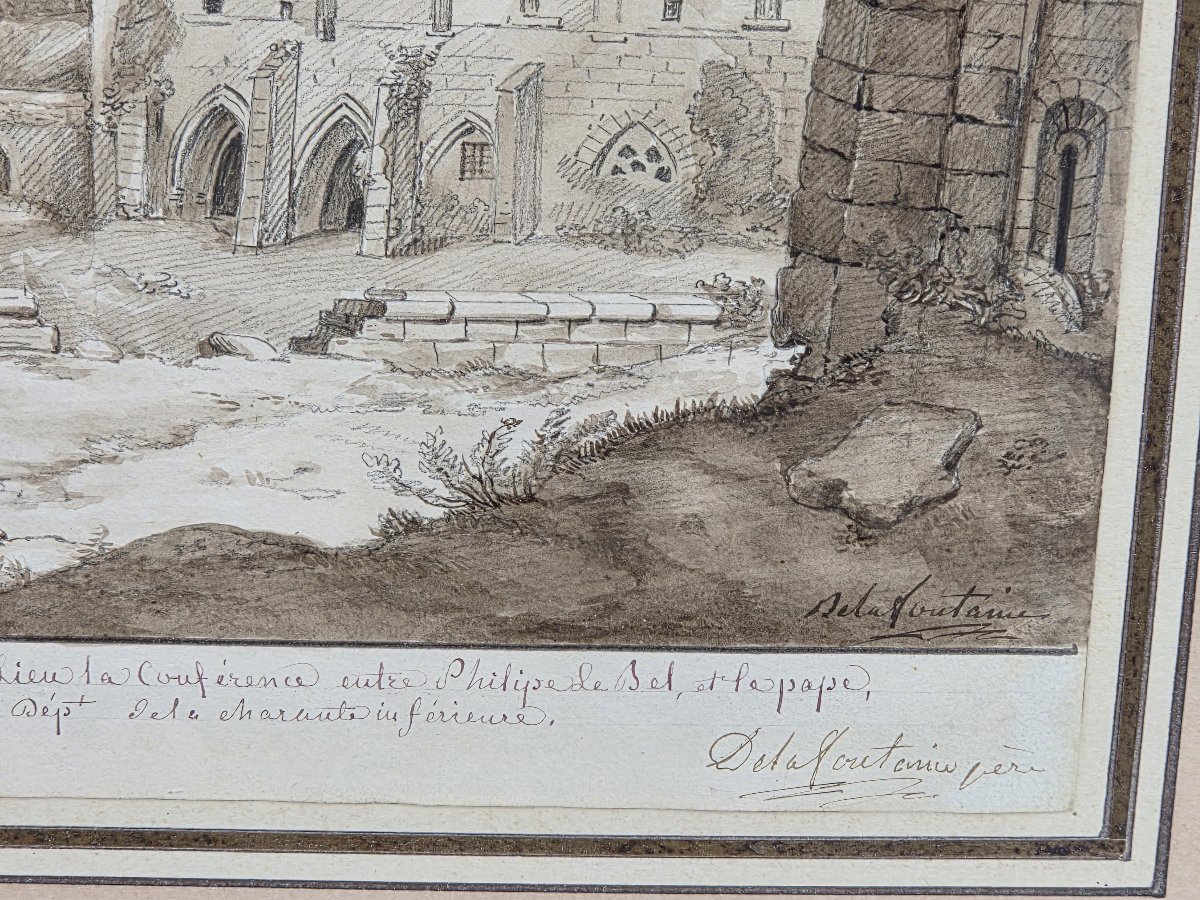 Delafontaine
lieu la Conférence entre Philipe le Bel, et le pape,
Dépt de la charante inférieure.
Delafontaine père